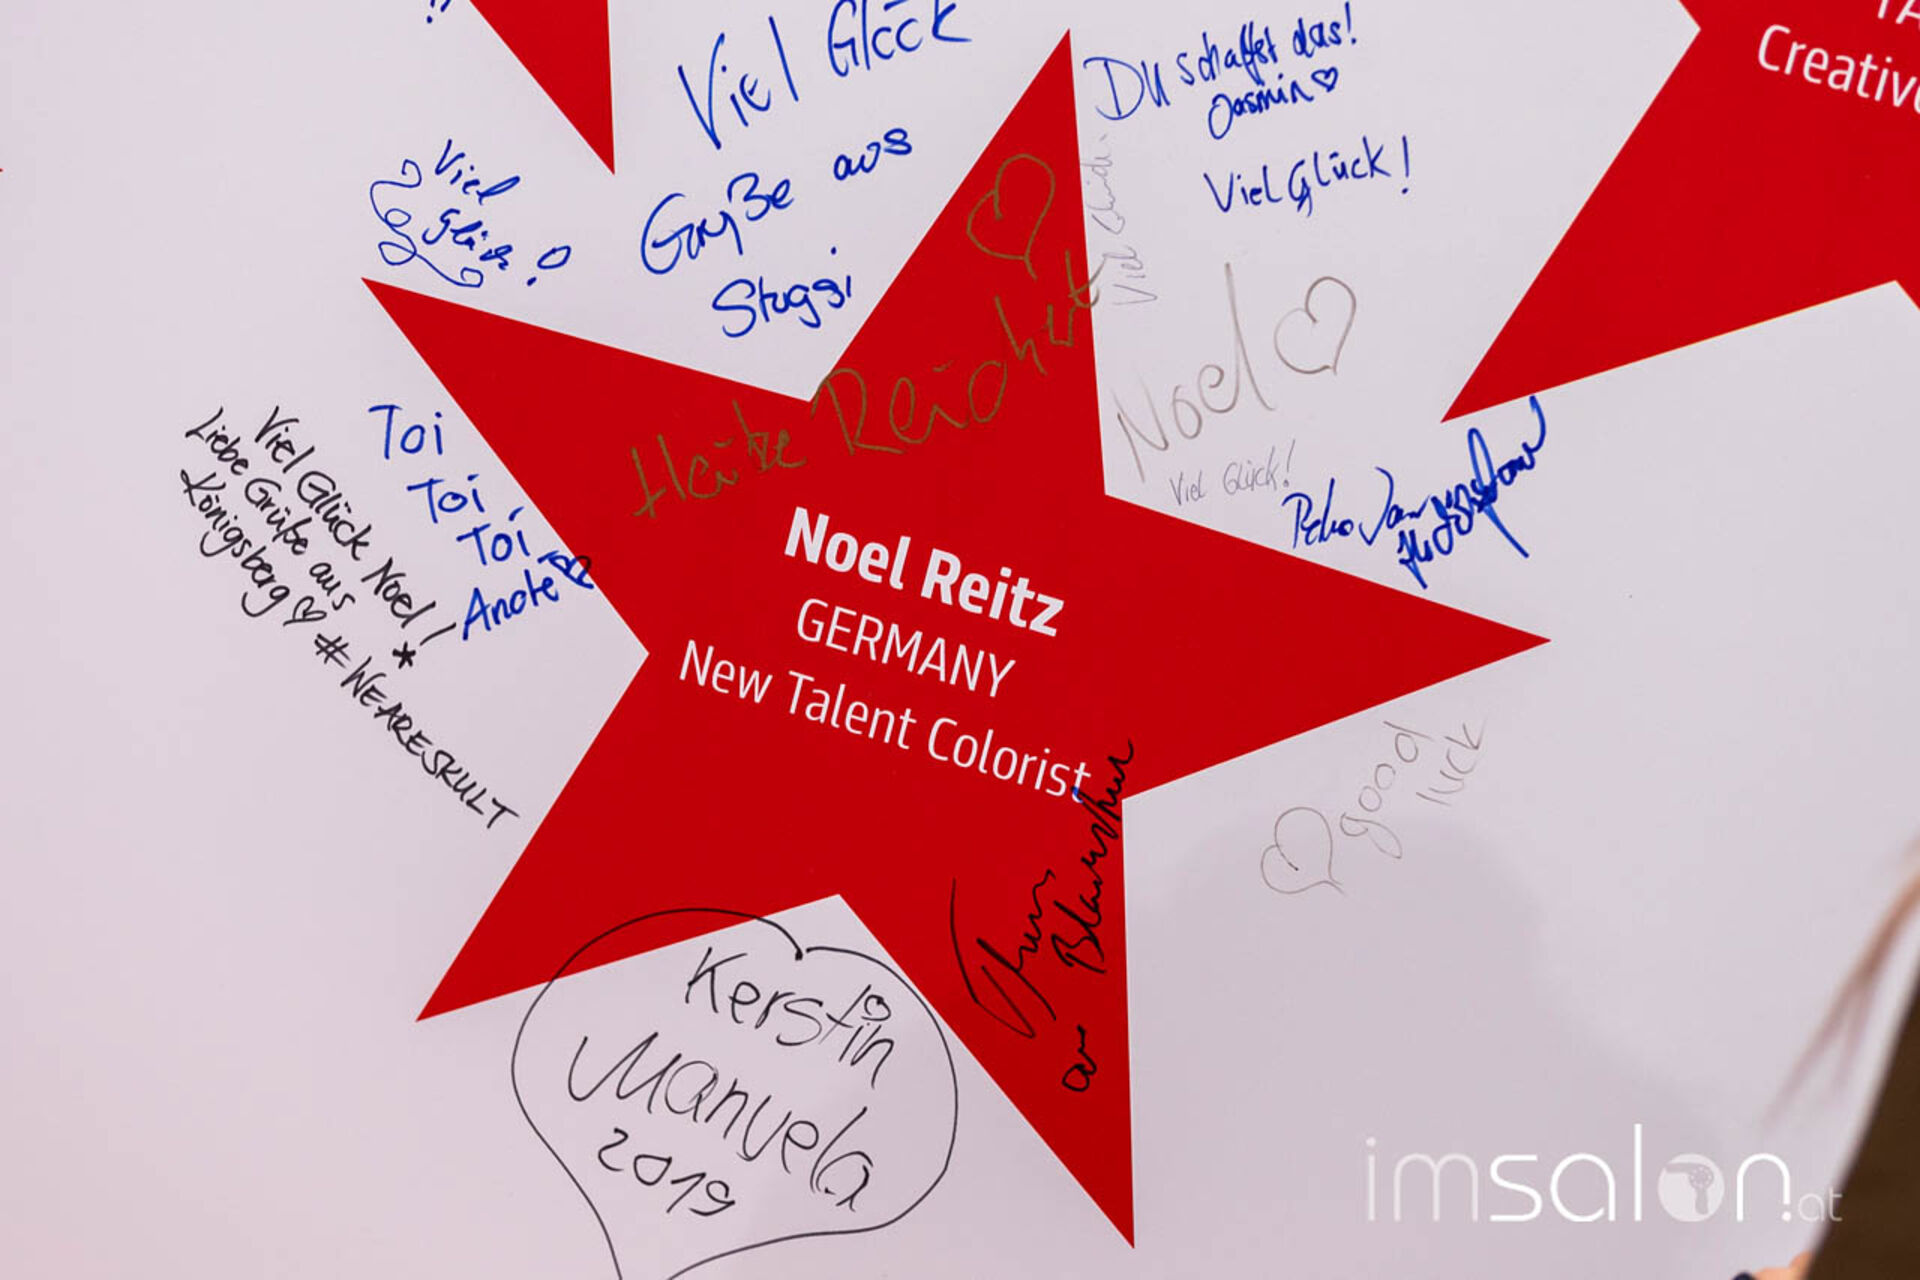 !!
Viel Glück
Grüße aus
Stuggi
Du schaffst das!
Jasmin♡
Viel Glück!
Creative
Viel
Glück!
Noel ♡
Viel Glück!
Toi
Toi,
Toi
Viel Glück Noel!
Liebe Grüße aus
Königsberg ♡ #WEARESKULT
Noel Reitz
GERMANY
New Talent Colorist
good
luck
Kerstin
Manuela
2019
imsalon.at